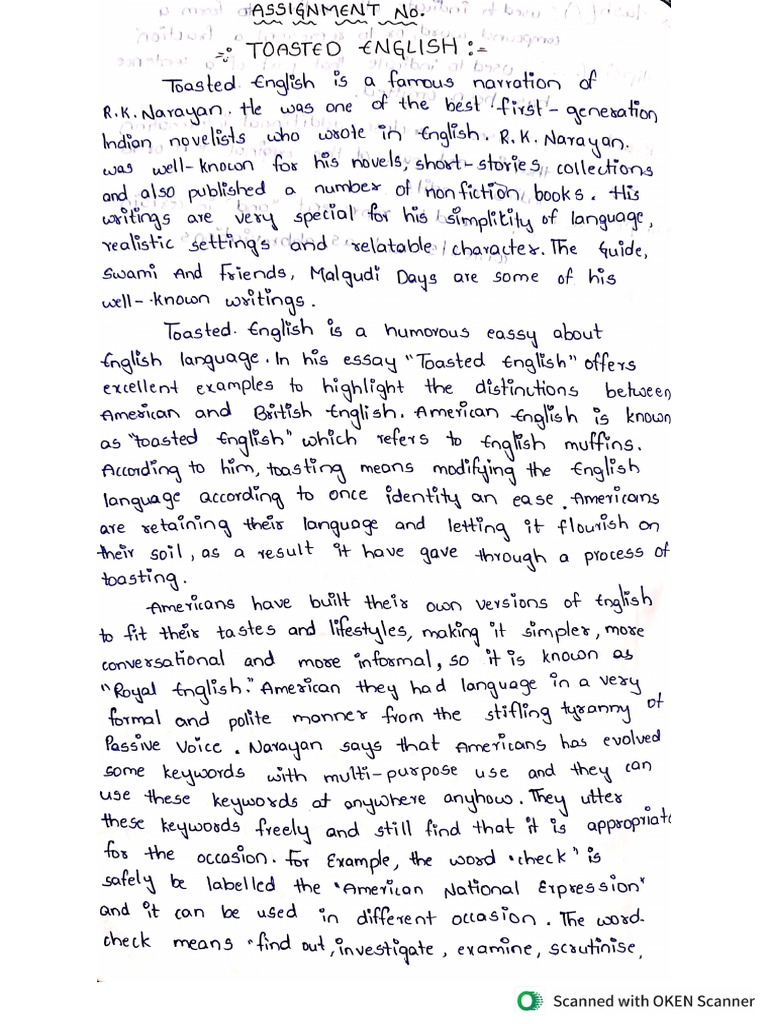 ASSIGNMENT No.
-:- TOASTED ENGLISH :-
Toasted English is a famous narration of
R.K. Narayan. He was one of the best first-generation
Indian novelists who wrote in English. R.K. Narayan.
was well-known for his novels, short-stories, collections
and also published a number of nonfiction books. His
writings are very special for his simplitity of language,
realistic setting's and relatable character. The Guide,
Swami And Friends, Malgudi Days are some of his
well-known writings.
Toasted English is a humorous eassy about
English language. In his essay "Toasted English" offers
excellent examples to highlight the distinctions between
American and British English. American English is known
as "toasted English" which refers to English muffins.
According to him, toasting means modifying the English
language according to once identity an ease. Americans
are retaining their language and letting it flourish on
their soil, as a result it have gave through a process of
toasting.
Americans have built their own versions of English
to fit their tastes and lifestyles, making it simpler, more
conversational and more informal, so it is known as
"Royal English." American they had language in a very
formal and polite manner from the stifling tyranny of
Passive Voice. Narayan says that Americans has evolved
some keywords with multi-purpose use and they can
use these keywords at anywhere anyhow. They utter
these keywords freely and still find that it is appropriate
for the occasion. For Example, the word 'check' is
safely be labelled the "American National Expression"
and it can be used in different occasion. The word
check means "find out, investigate, examine, scrutinise,
Scanned with OKEN Scanner